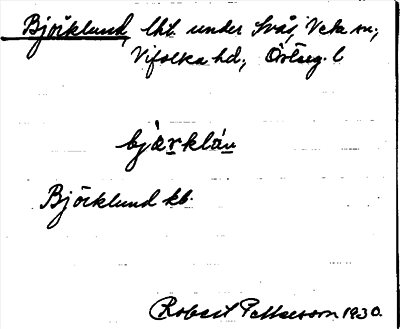 Björklund, lht. under Svås, Veta sn.,
Vifolka hd., Österg. l
bjärkláu
Björklund kb.
Robert Pettersson 1930.